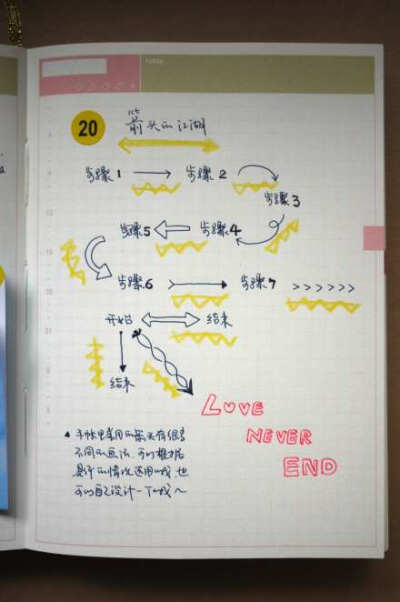 20 箭头的江湖
步骤1 步骤2
步骤3
步骤5 步骤4
步骤6 步骤7
开始 结束
结束
LOVE
NEVER
END
手帐里常用的箭头有很多
不同的画法,可以根据
具体的情况运用哦,也
可以自己设计一下哦~